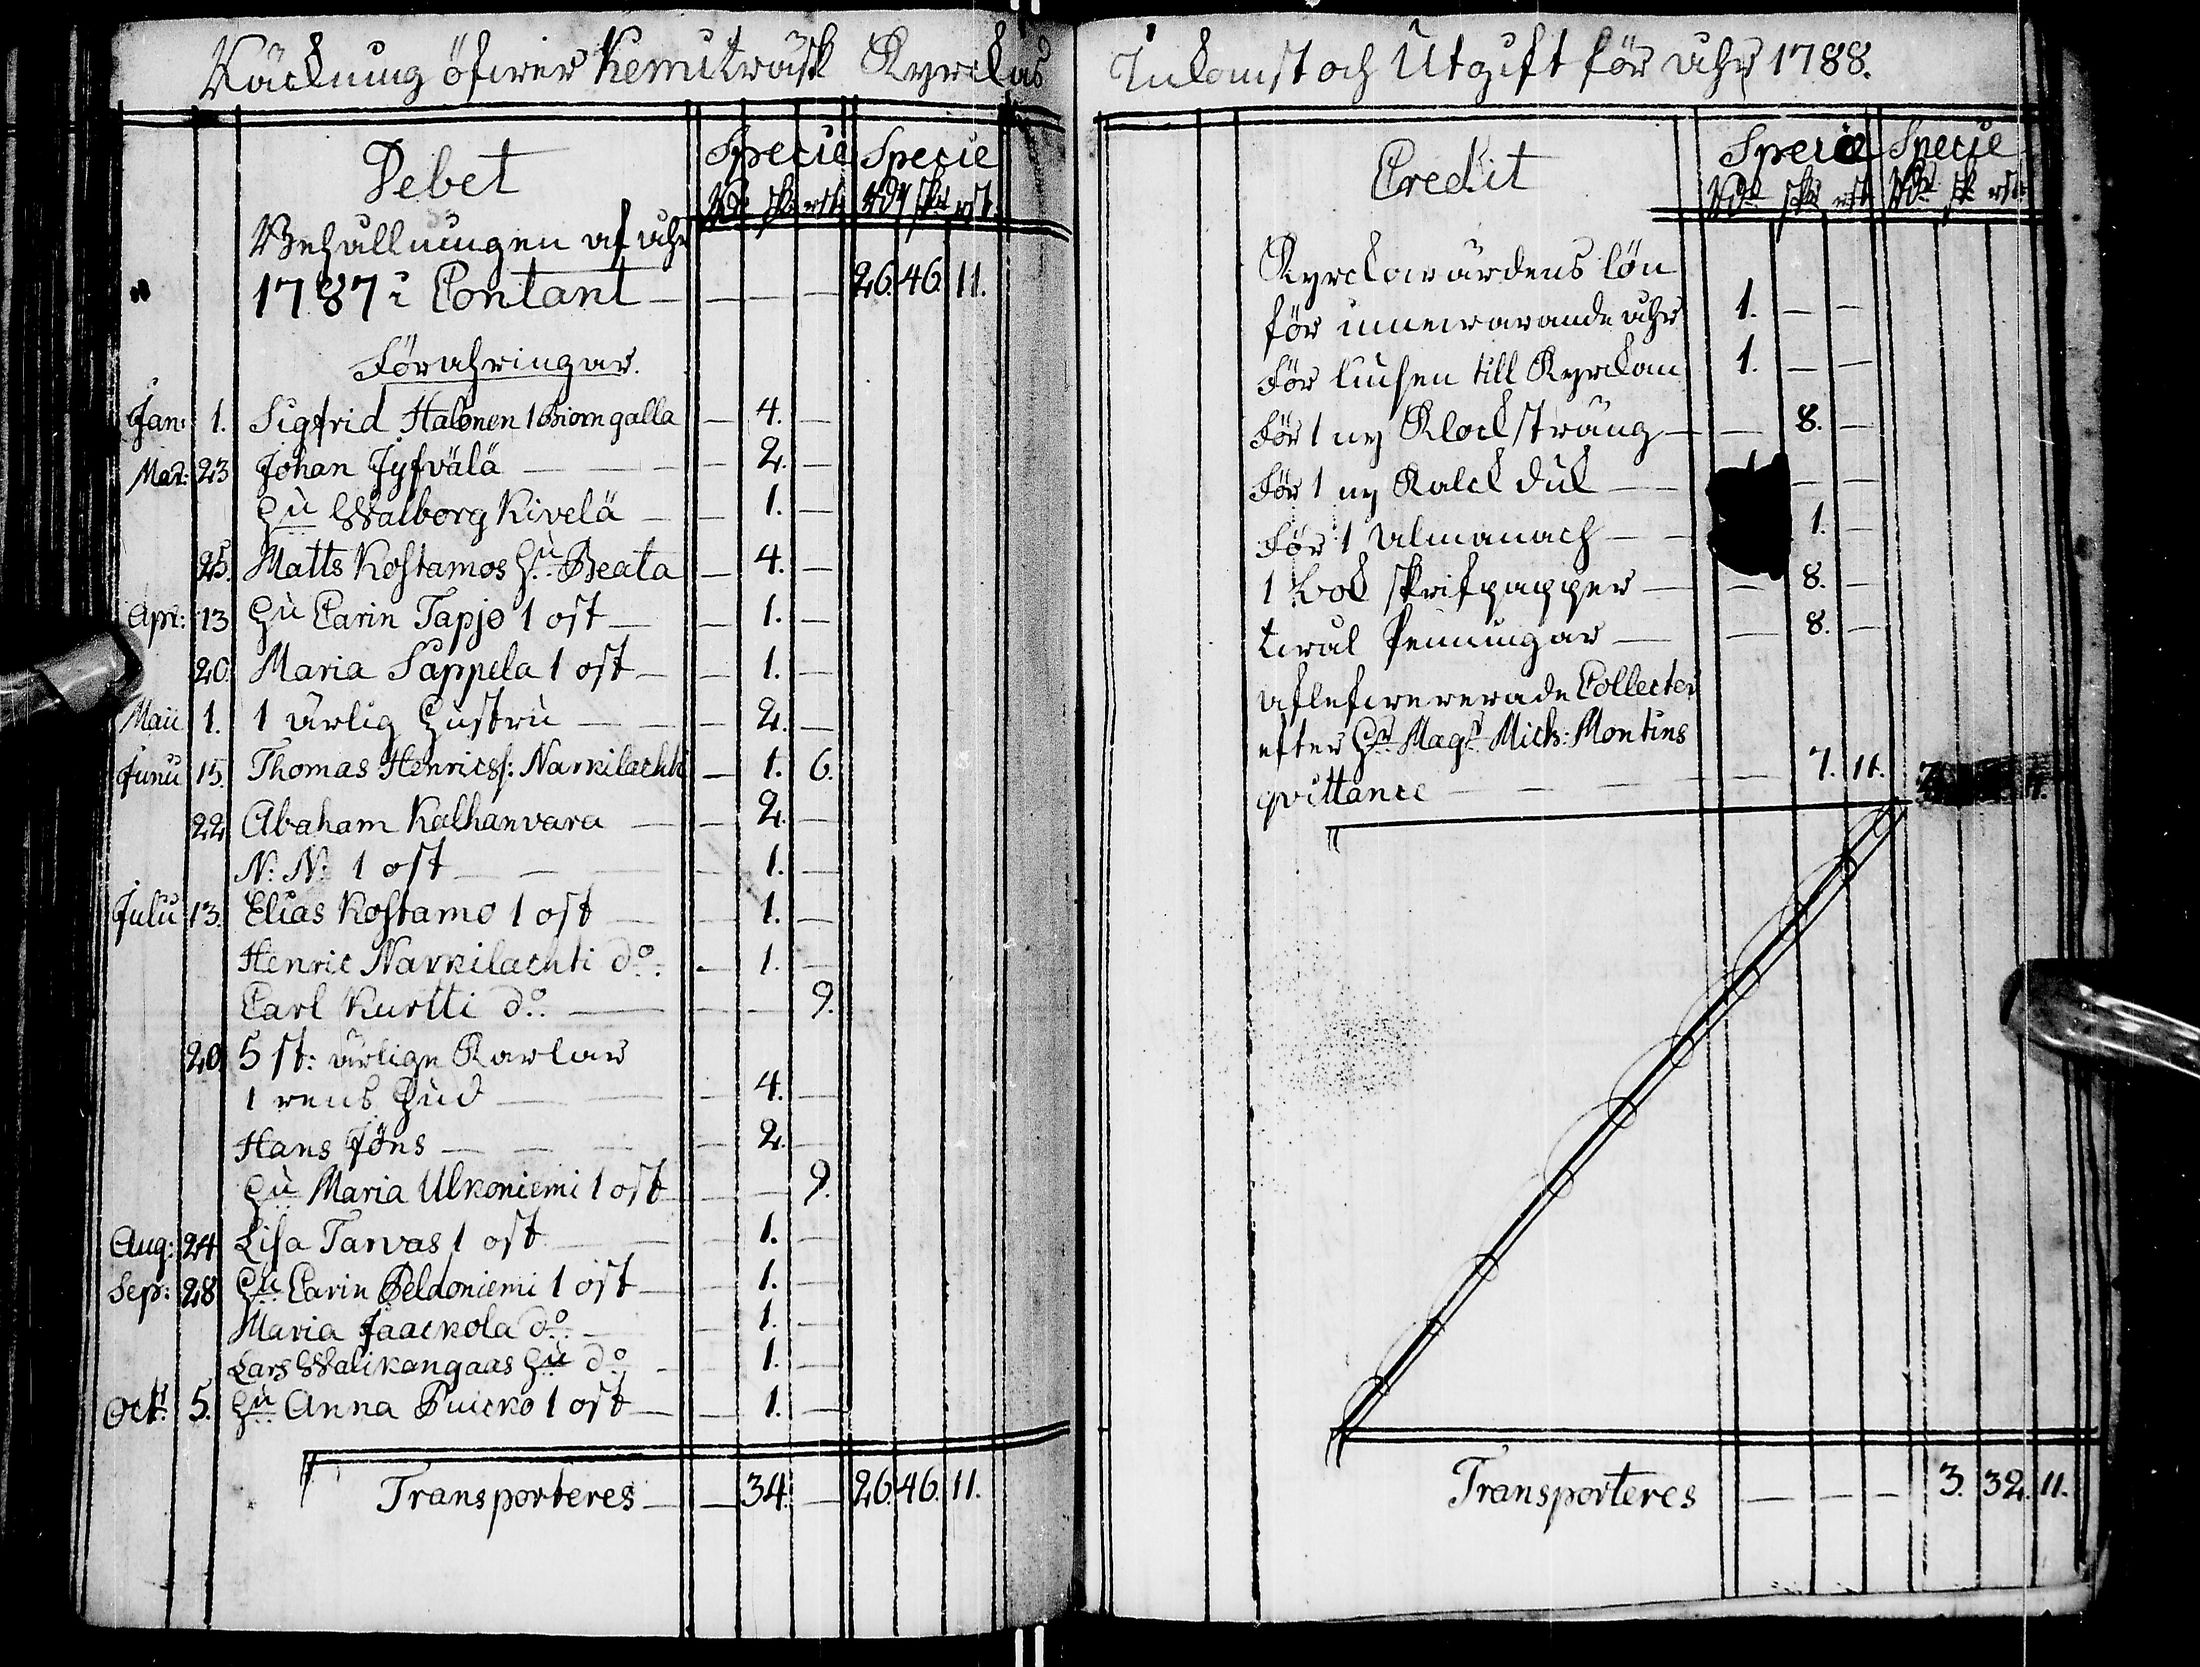 Räckning öfwer Kemiträsk Kyrckas
Debet
Specie Specie
Rdr sk rst. Rdr sk rst.
Behållningen af åhr
1787 i Contant — — — — 26. 46. 11.
Förähringar.
Jan: 1. Sigfrid Halonen 1 Biorn galla — 4. —
Mar: 23 Johan Jyfvälä — — — — 2. —
Hu Walborg Kivelä — — 1. —
25. Matts Kostamos Hu Beata — 4. —
Apr: 13 Hu Carin Tapjo 1 ost — — 1. —
20. Maria Sappela 1 ost — — 1. —
Maii 1. 1 ärlig Hustru — — — 2. —
Junii 15. Thomas Henricss: Narkilachti — 1. 6.
22 Abaham Kalhanvara — — 2. —
N: N: 1 ost — — — — 1. —
Julii 13. Elias Kostamo 1 ost — — 1. —
Henric Narkilachti do: — 1. —
Carl Kurtti do: — — — 9.
20 5 st: ärlige Karlar
1 rens Hud — — — 4. —
Hans Jöns — — — — 2. —
Hu Maria Ulkoniemi 1 ost — — 9.
Aug: 24 Lisa Tarvas 1 ost — — 1. —
Sep: 28 Hu Carin Peldoniemi 1 ost — — 1. —
Maria Jaackola do: — — 1. —
Lars Walikangaas Hu do — 1. —
Oct: 5. Hu Anna Puicko 1 ost — — 1. —
Transporteres — — 34. — 26. 46. 11.
Inkomst och Utgift för åhr 1788.
Credit
Specie Specie
Rdr sk rst Rdr sk rst
Kyrckowärdens lön
för innewarande åhr 1. — —
För liusen till Kyrckan 1. — —
För 1 ny Klocksträng — — 8. —
För 1 ny Kalck duk — — — —
För 1 Almanach — — 1. —
1 bok skrifpapper — — 8. —
twål Penningar — — 8. —
aflefwererade Collecter
efter Hr Magr Mich: Montins
qvittance — — — — 7. 11.
Transporteres — — — 3. 32. 11.